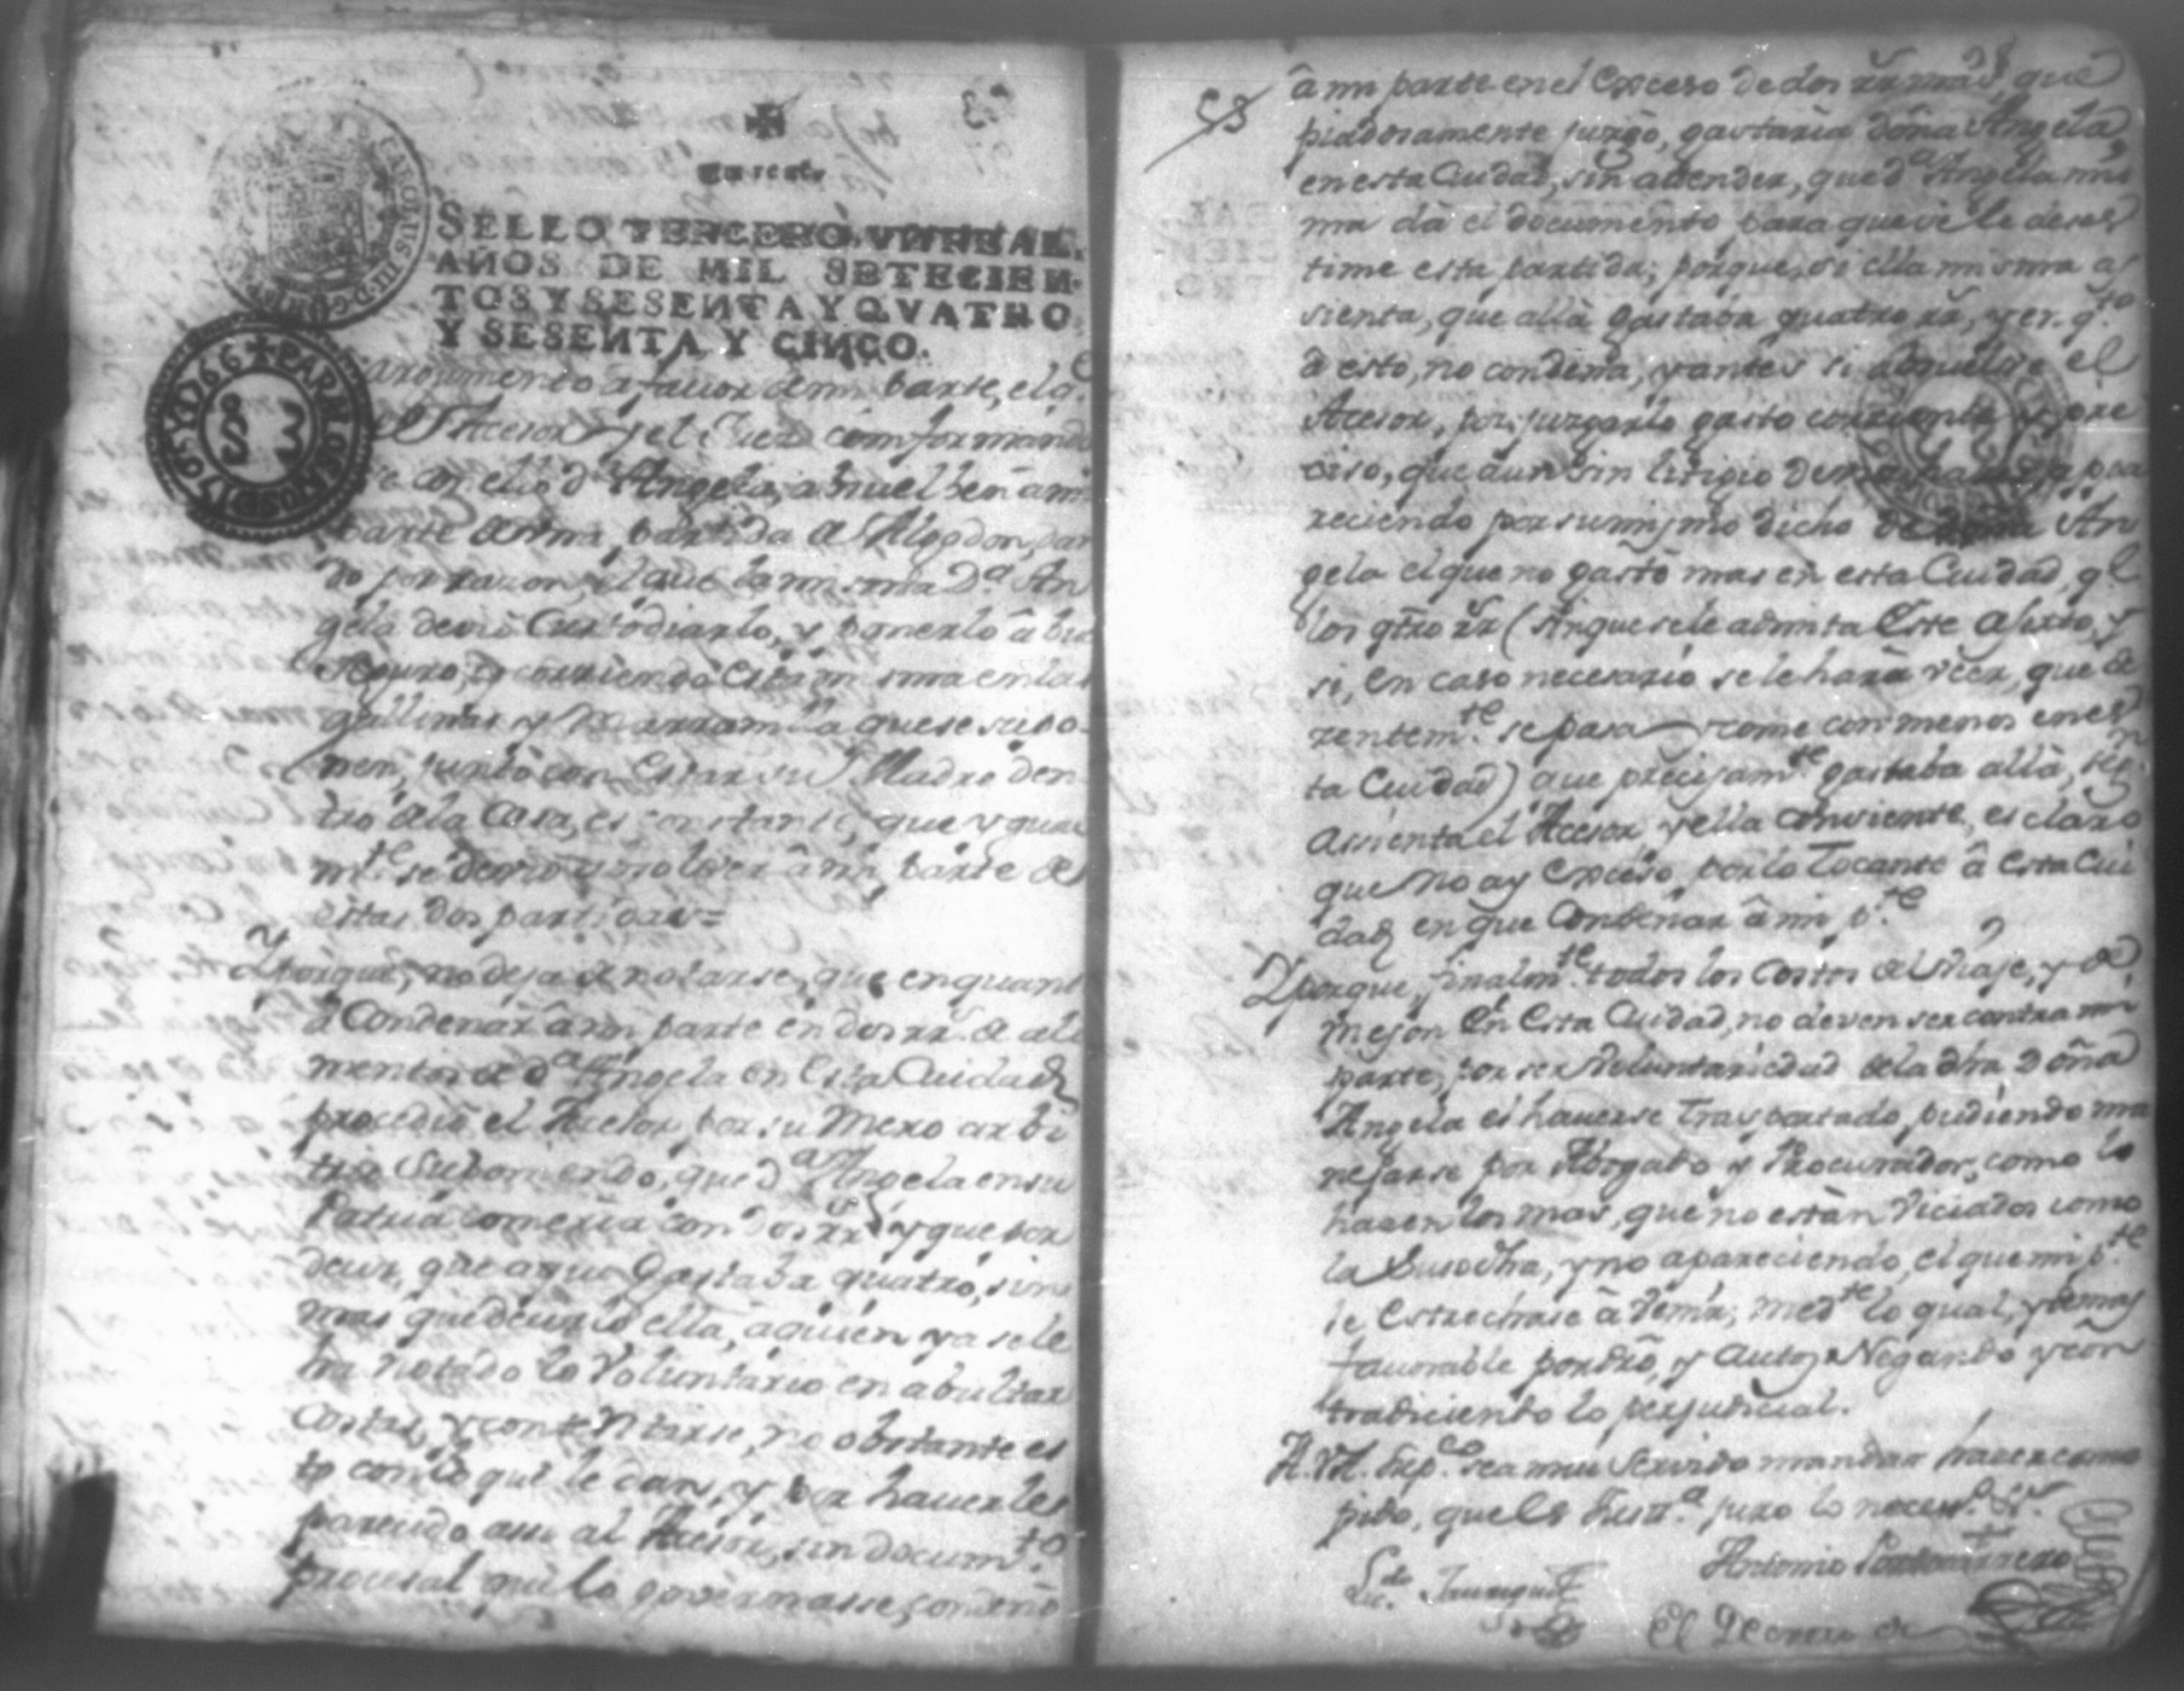 Un real.
SELLO TERCERO, VN REAL,
AÑOS DE MIL SETECIEN-
TOS Y SESENTA Y QVATRO
Y SESENTA Y CINCO.
CAROLUS III D G
PARA LOS AÑOS D 176 Y 1766
S 3
argumento a favor de mi parte, el q.e
el Acesor y el Juez conformando
se con ello d.a Angela, absuelben a mi
parte de una partida de Algodon, dan
do por razon, el que la misma D.a An
gela devió Custodiarlo, y ponerlo â bue
seguro, y corriendo esta misma en las
gallinas y Marrano la que se supo-
nen, junto con estar su Madre den
tro de la Casa, es constante, que ygual
m.te se devio absolver â mi parte de
estas dos partidas=
Y porque, no deja de notarse, que en quant
â Condenar â mi parte en dos rr.s de ali
mentos de d.a Angela en esta Cuidad
procedió el Acesor, por su mero arbi
trio Suponiendo, que d.a Angela en su
Patria comeria con dos rr.s y que por
decir, que aqui gastaba quatro, sin
mas que decirlo ella, a quien ya se le
ha notado lo Voluntario en abultar
Costas, y contentarse, no obstante es
to con lo que le dan, y por haverles
parecido assi al Acesor, sin docum.to
procesal que lo governasse, condenó
53
â mi parte en el Exceso de dos rr.s mas, que
piadosamente juzgo, gastaria doña Angela,
en esta Cuidad, sin atender, que d.a Angela mis
ma dà el documento para que se le deses
time esta partida; porque, si ella misma a
sienta, que allà gastaba quatro rr.s, y en q.to
â esto, no condena, y antes si absuelve el
Acesor, por juzgarlo gasto corriente y pre
ciso, que aun sin litigio
reciendo por su mismo dicho de doña An
gela el que no gastò mas en esta Cuidad, q.e
los q̃tro rr.s (sin que se le admita Este aserto, y
si, en caso necesario se le harà veer, que de
zentem.te se pasa y come con menos en es
ta Cuidad) que precisam.te gastaba allà, seg.n
assienta el Acesor, y ella consiente, es claro
que No ay Exceso, por lo Tocante â Esta Cui
dad, en que Condenar â mi p.te
Y porque, finalm.te todos los Costos del Viaje, y de
meson En Esta Cuidad, no deven ser contra mi
parte, por ser Voluntariedad de la dha Doña
Angela el haverse trasportado, pudiendo ma
nejarse por Abogado y Procurador, como lo
hacen los mas, que no estàn Viciados como
la Susodha, y no apareciendo, el que mi p.te
le Estrechase â Venir, med.te lo qual, y demas
favorable por dro, y autos Negando y con
tradiciendo lo perjudicial.
A. VM. Sup.co sea mui Servido mandar hacer como
pido, que Es Just.a juro lo neces.o &.a
Antonio
Lic.do
El